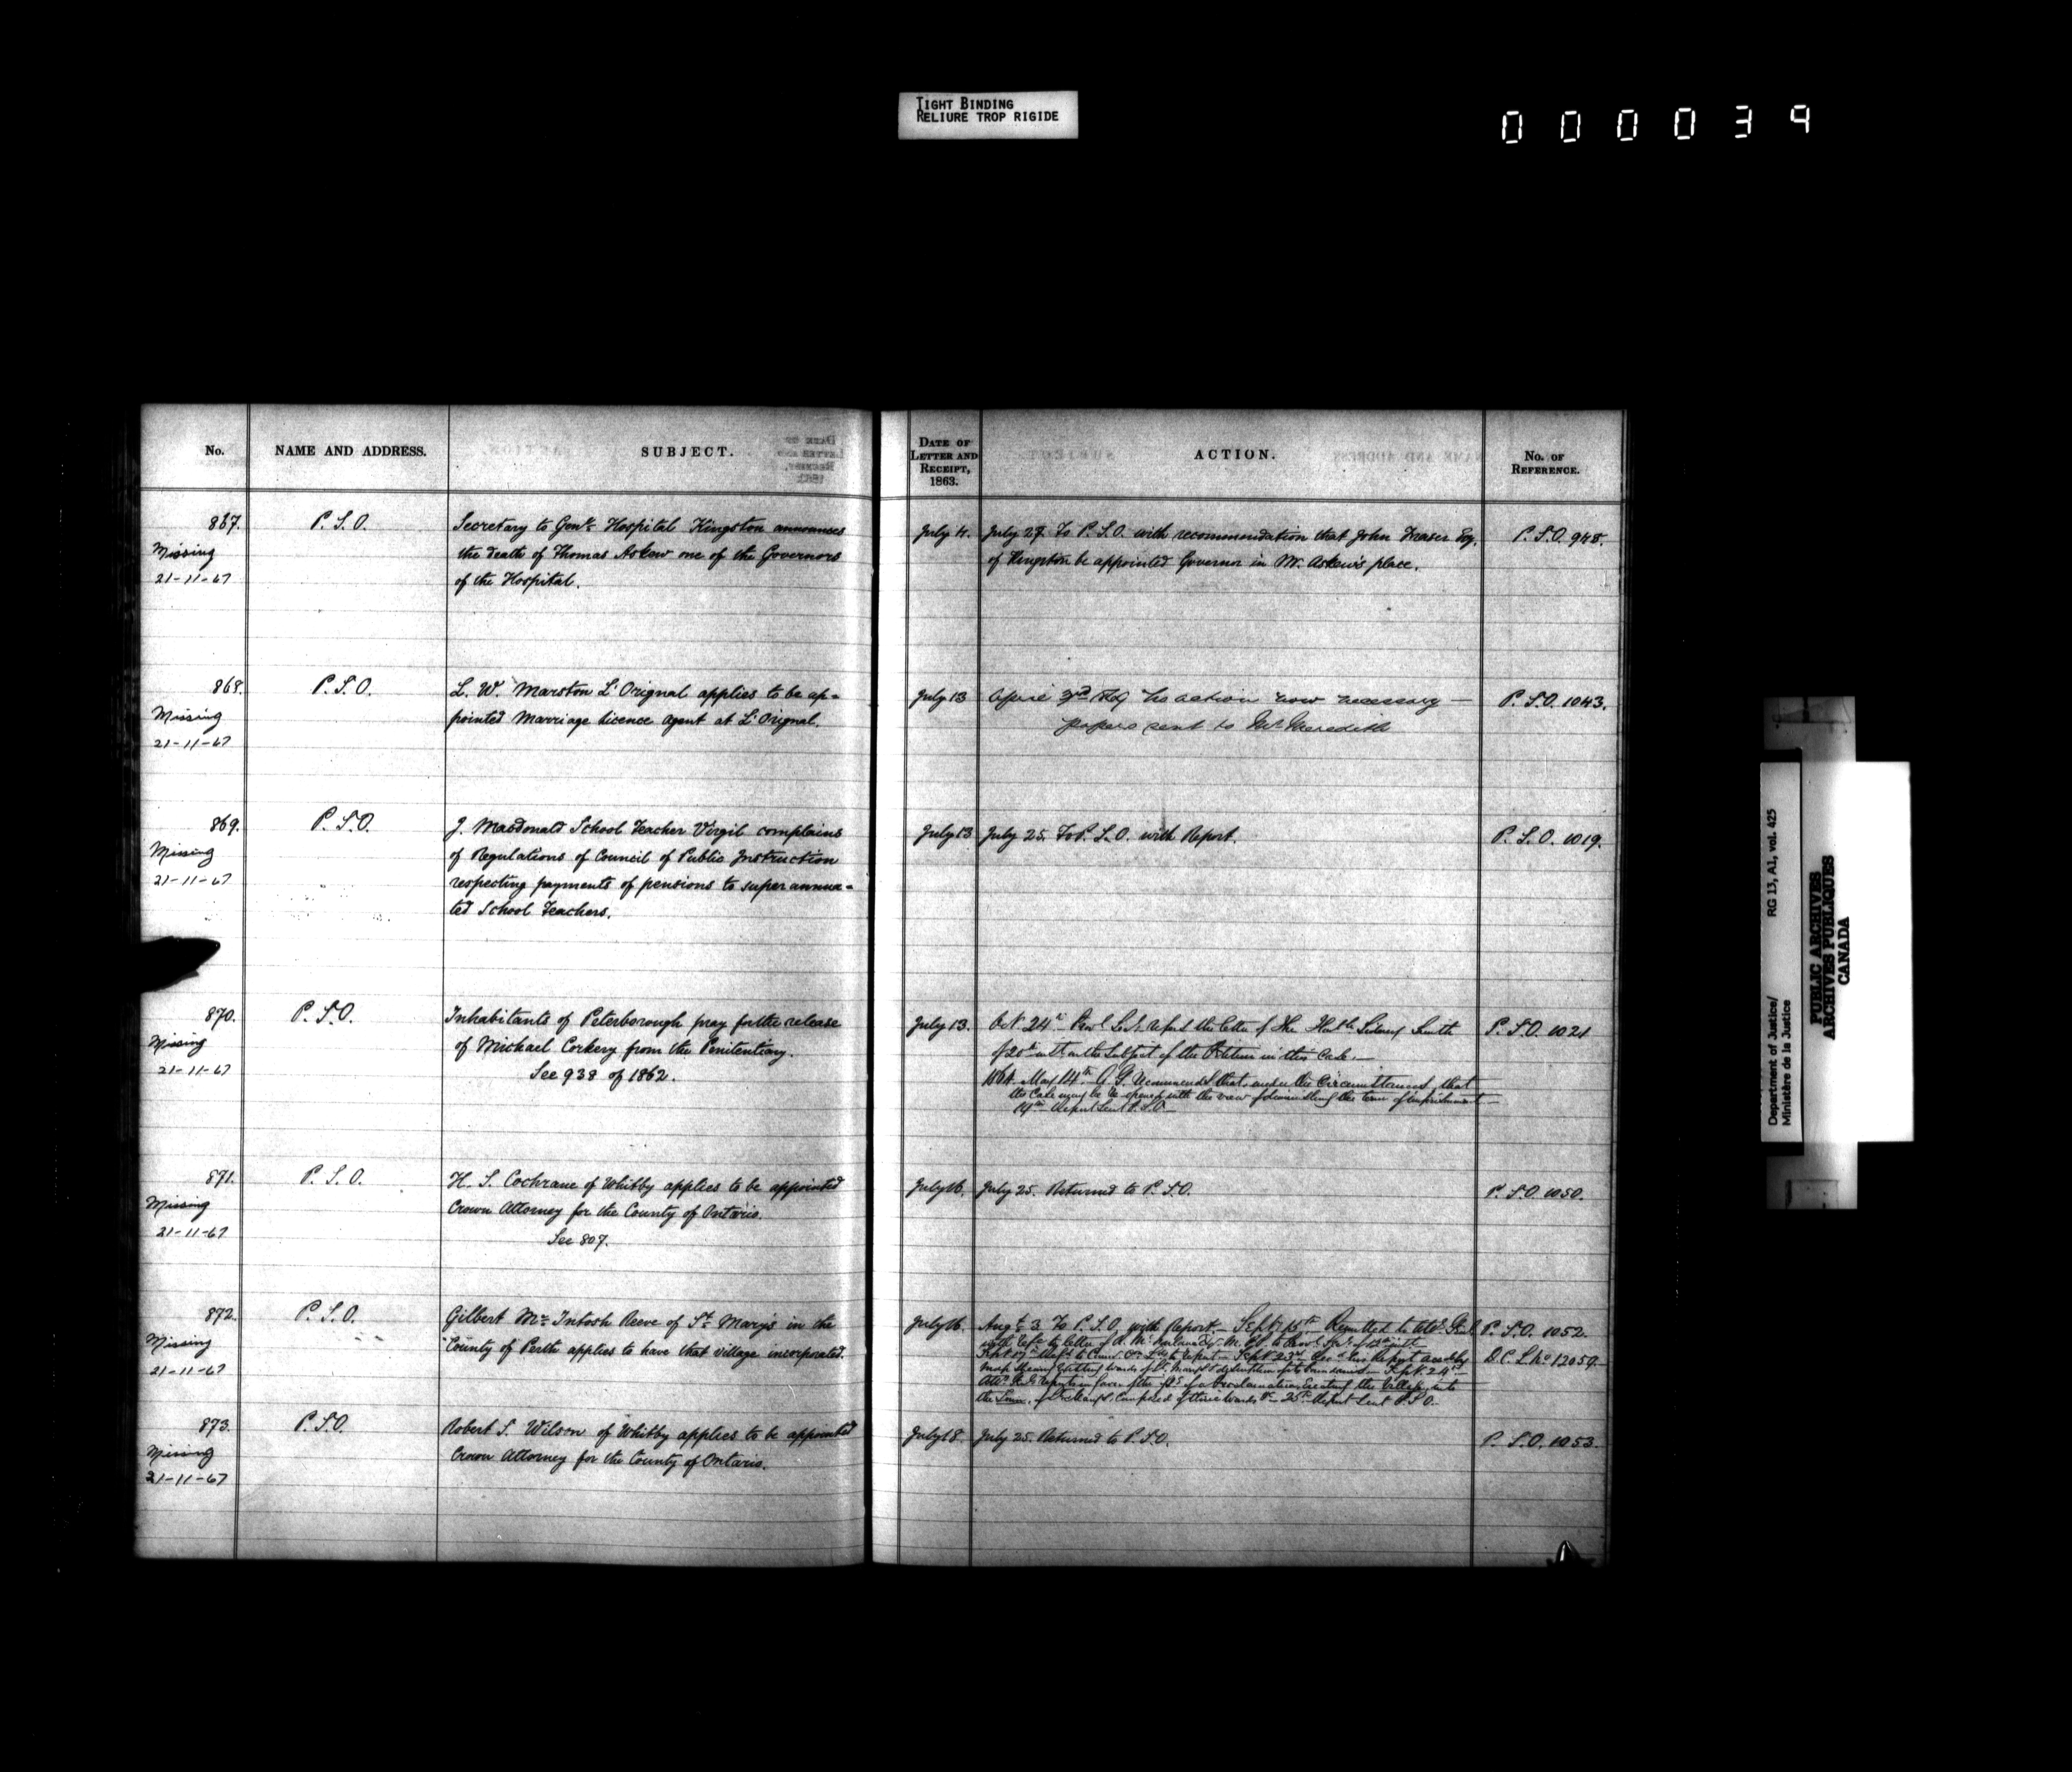 TIGHT BINDING
RELIURE TROP RIGIDE
000039
No. NAME AND ADDRESS. SUBJECT. DATE OF LETTER AND RECEIPT, 1863. ACTION. No. OF REFERENCE.
867. P.S.O. Secretary to Genl. Hospital Kingston announces
Missing the death of Thomas Askew one of the Governors
21-11-67 of the Hospital.
July 4. July 27. To P.S.O. with recommendation that John Fraser Esq.
of Kingston be appointed Governor in Mr. Askew's place.
P.S.O. 948.
868. P.S.O. L. W. Marston L'Orignal applies to be ap-
Missing pointed Marriage Licence Agent at L'Orignal.
21-11-67
July 13 April 3rd no action now necessary —
papers sent to Mr Meredith
P.S.O. 1043.
869. P.S.O. J. Macdonald School Teacher Virgil complains
Missing of Regulations of Council of Public Instruction
21-11-67 respecting payments of pensions to superannua-
ted School Teachers.
July 13 July 25. To P.S.O. with Report.
P.S.O. 1019.
870. P.S.O. Inhabitants of Peterborough pray for the release
Missing of Michael Corkery from the Penitentiary.
21-11-67 See 938 of 1862.
July 13. Oct 24th the letter of The Honble Sidney Smith
of 20th on the Subject of the Petition in this Case. —
1864. May 14th A.G. Recommended that, under the Circumstances, that
the Case may be Re-opened with the view of the term of imprisonment —
Report Sent P.S.O.
P.S.O. 1021
871. P.S.O. H. S. Cochrane of Whitby applies to be appointed
Missing Crown Attorney for the County of Ontario.
21-11-67 See 807.
July 16. July 25. Returned to P.S.O.
P.S.O. 1050.
872. P.S.O. Gilbert McIntosh Reeve of St. Mary's in the
Missing County of Perth applies to have that village incorporated.
21-11-67
July 16. Augt. 3 To P.S.O. with Report. — Sept 15th Remitted to Atty. Genl.
with letter of
Sept 17th to Report — Sept 23rd Report
Map Shewing Wards of St. Mary's & Sept. 24th
Report in favor of a Proclamation Erecting the Village into
the Town of St. Mary's Composed of three Wards 25th Report Sent P.S.O.
P.S.O. 1052.
D.C.L. No 12059
873. P.S.O. Robert S. Wilson of Whitby applies to be appointed
Missing Crown Attorney for the County of Ontario.
21-11-67
July 18. July 25. Returned to P.S.O.
P.S.O. 1053.
Department of Justice/ RG 13, A1, vol. 425
Ministère de la Justice
PUBLIC ARCHIVES
ARCHIVES PUBLIQUES
CANADA